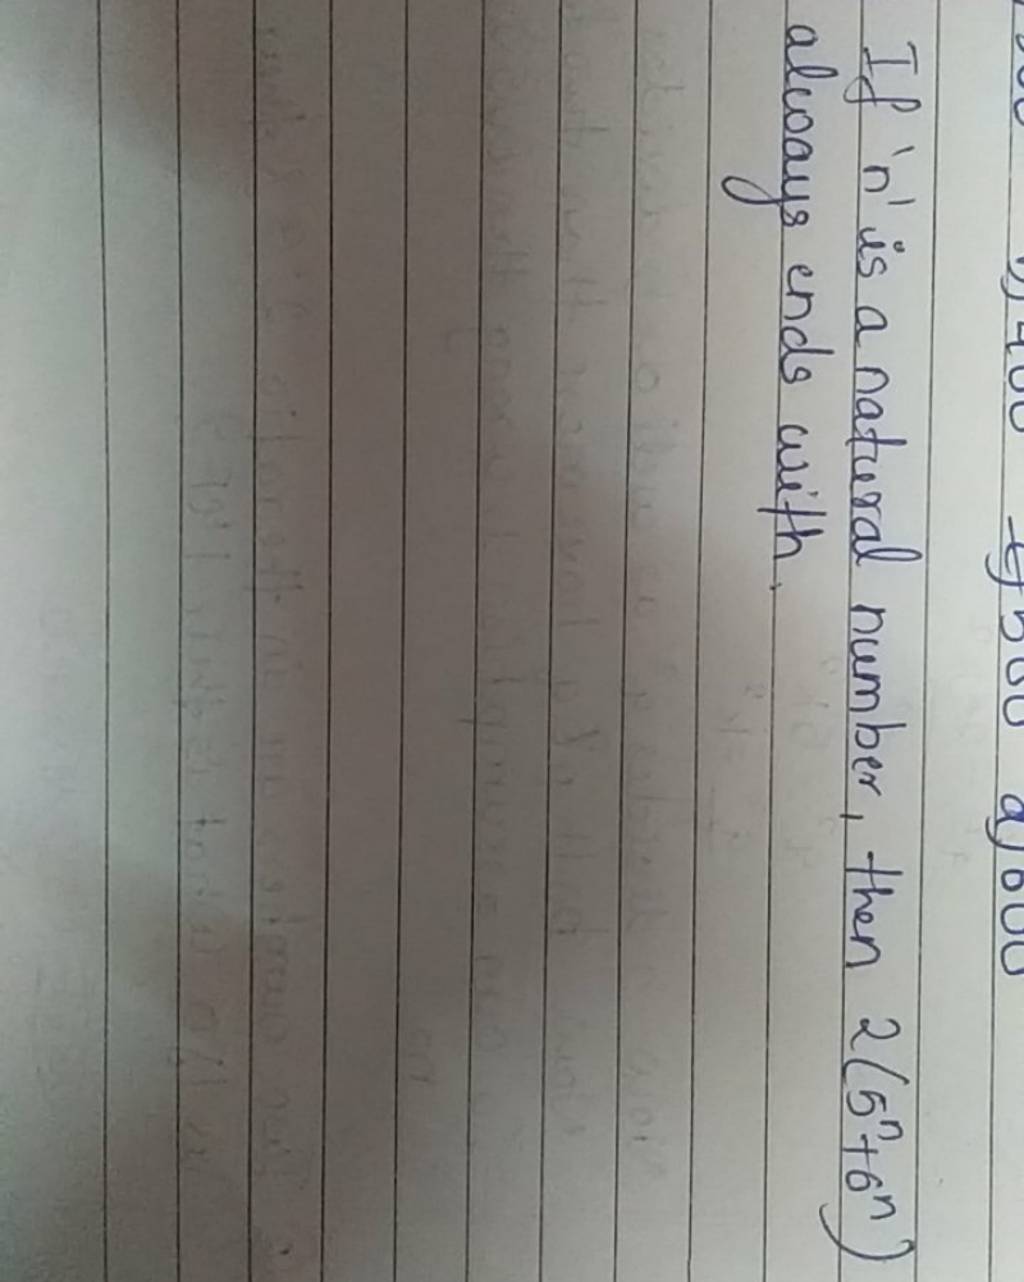 b) 400 c) 500 d) 600
If 'n' is a natural number, then 2(5ⁿ+6ⁿ)
always ends with.